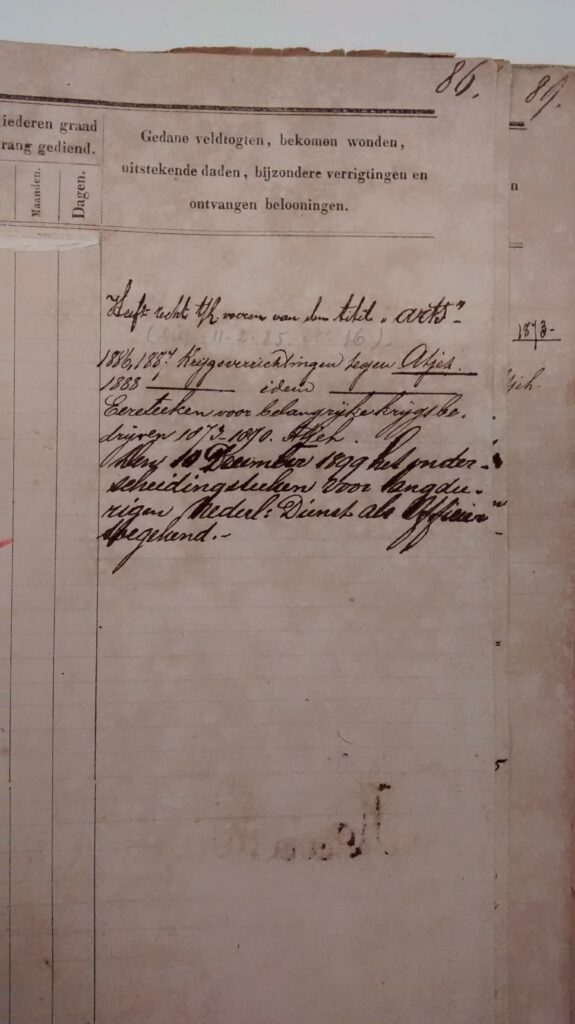 86.
89.
iederen graad
rang gediend.
Maanden.
Dagen.
Gedane veldtogten, bekomen wonden,
uitstekende daden, bijzondere verrigtingen en
ontvangen belooningen.
n
Heeft recht t/h voeren van den titel "arts"
11-2-85. 16).
1886, 1887 Krijgsverrichtingen tegen Atjeh.
1888 idem
Eereteeken voor belangrijke krijgsbe-
drijven 1873-1890. Atjeh.
Den 10 December 1899 het onder-
scheidingsteeken voor langdu-
rigen Nederl: Dienst als Officier
toegekend.-
1873-
tjeh.